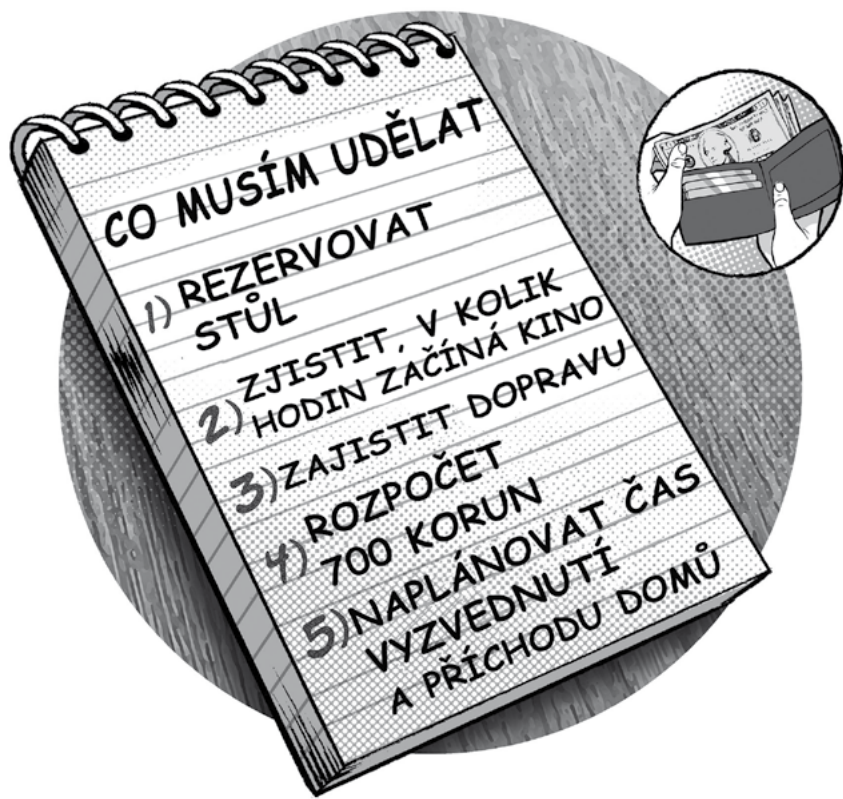 CO MUSÍM UDĚLAT
1) REZERVOVAT
STŮL
2) ZJISTIT, V KOLIK
HODIN ZAČÍNÁ KINO
3) ZAJISTIT DOPRAVU
4) ROZPOČET
700 KORUN
5) NAPLÁNOVAT ČAS
VYZVEDNUTÍ
A PŘÍCHODU DOMŮ